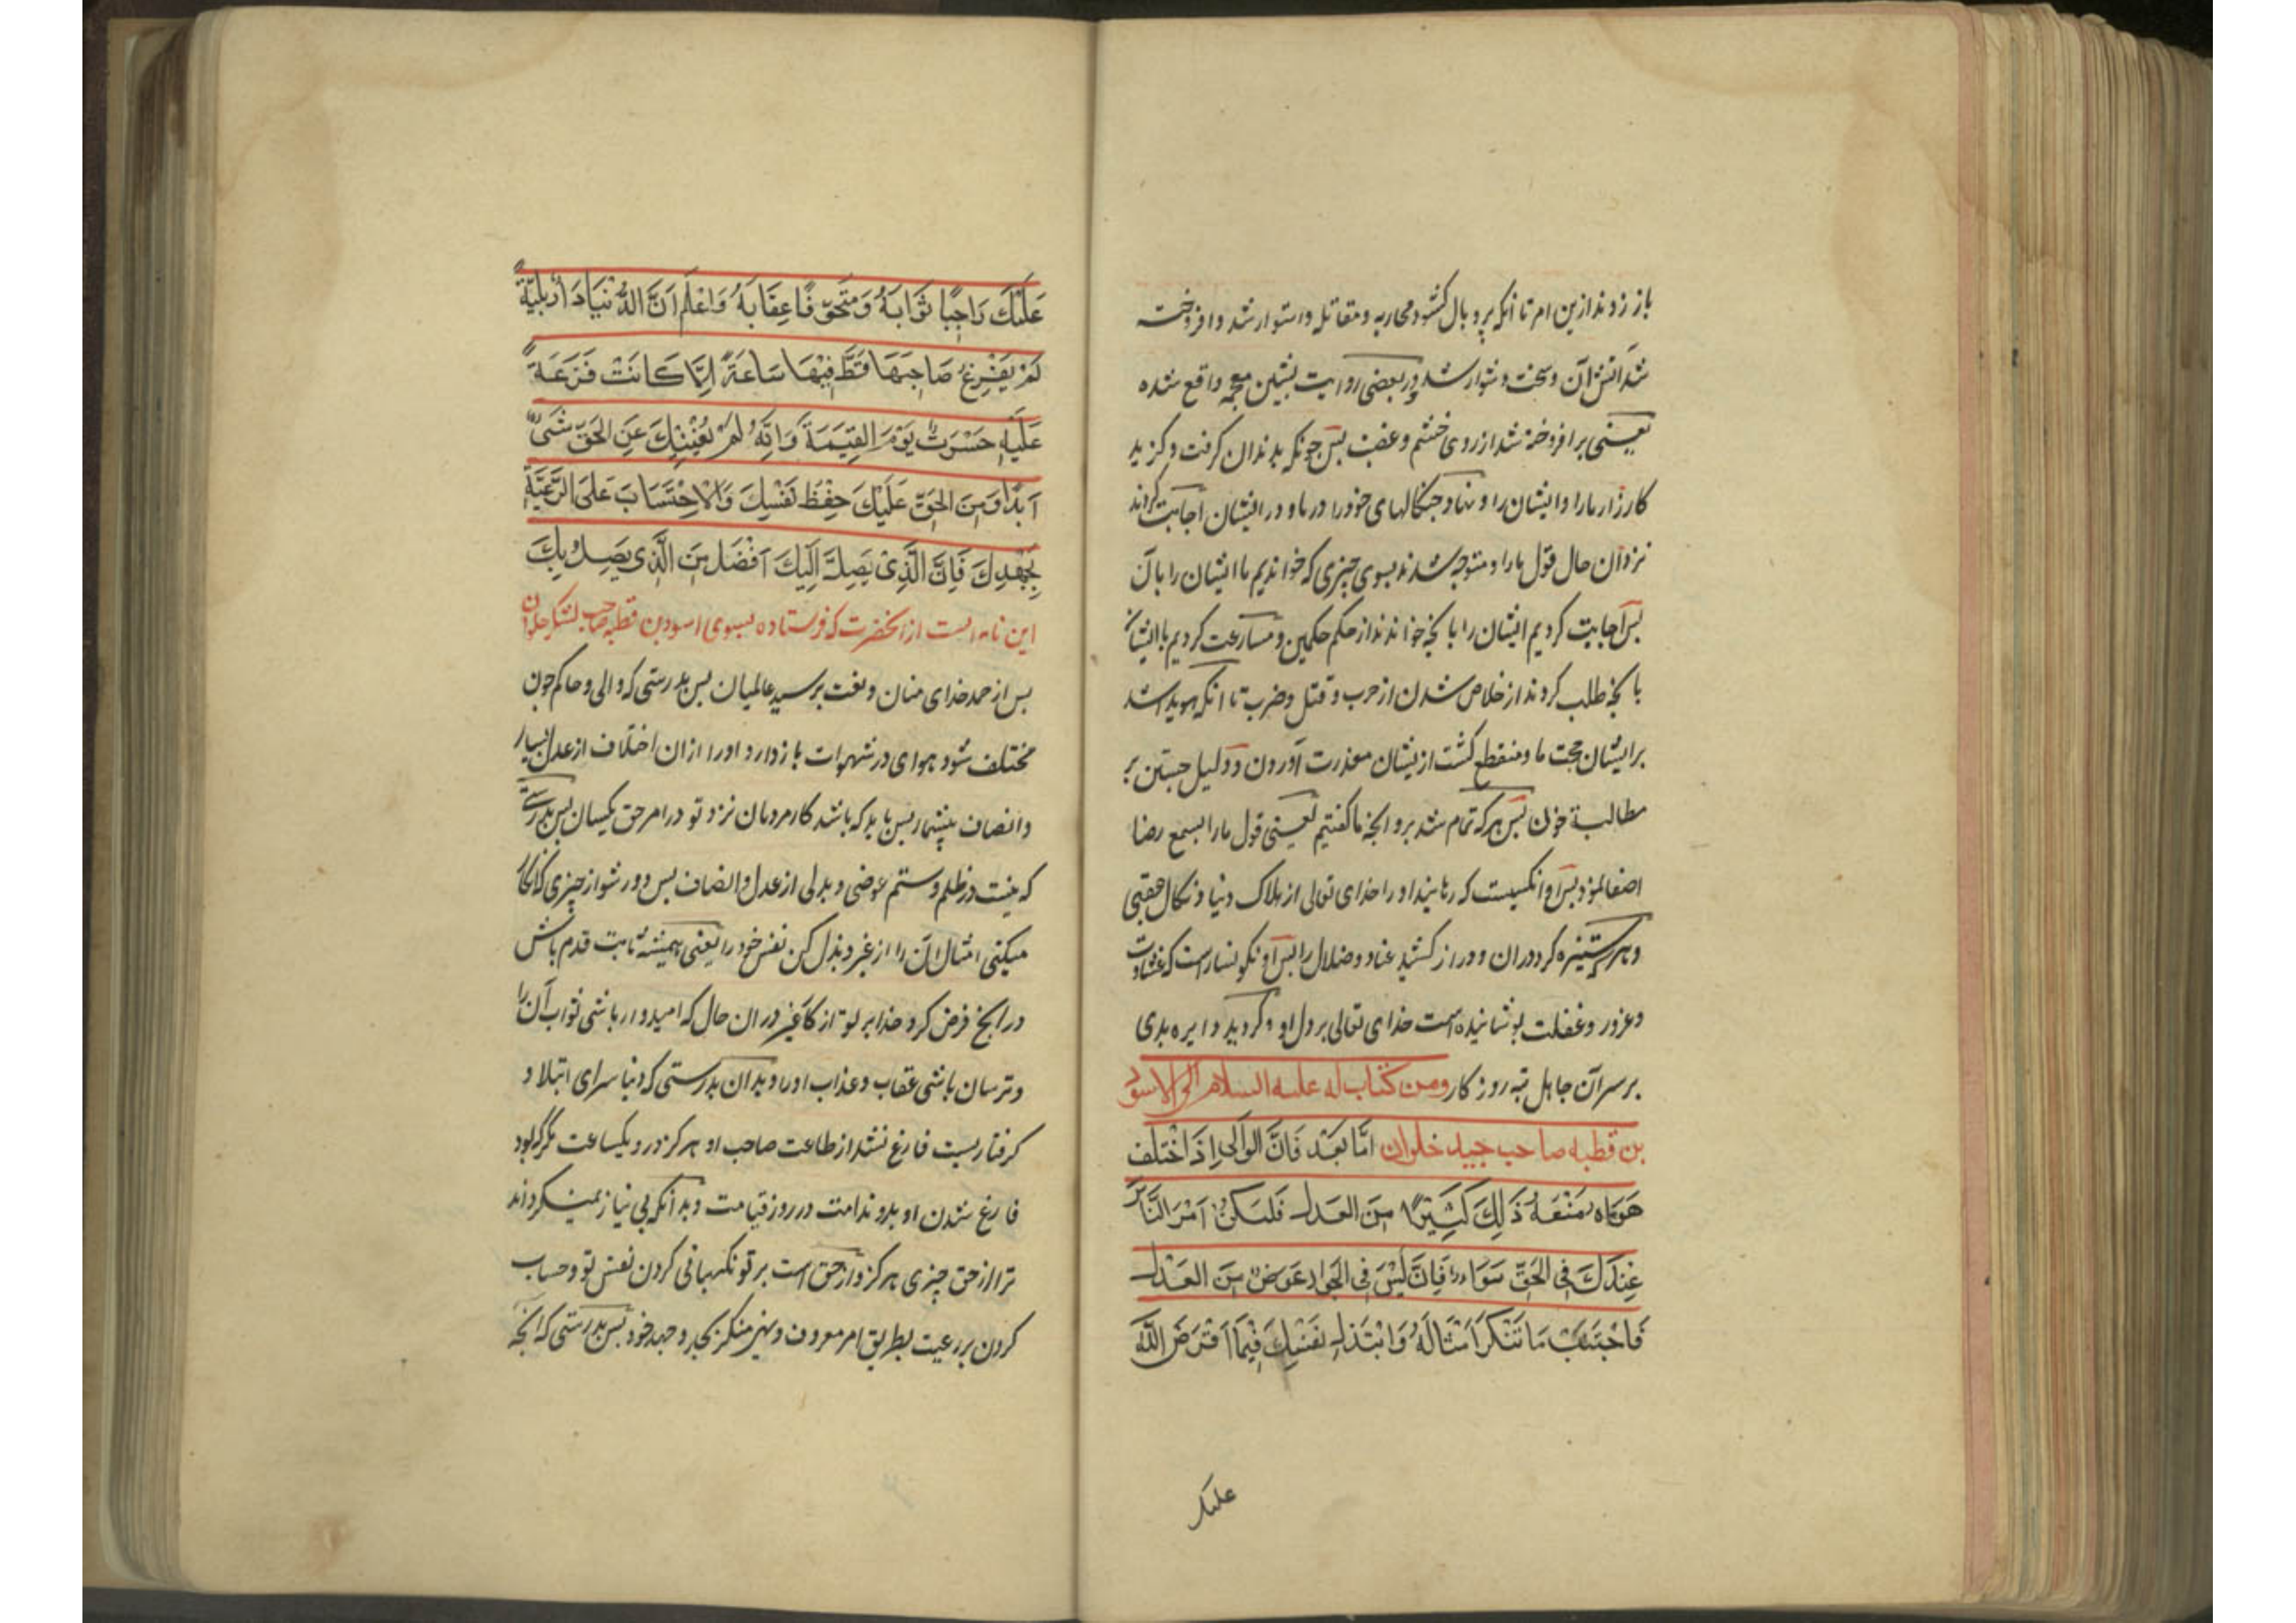 باز زدند ازین امر تا انکه پر و بال کشود محاربه و مقاتله و استوار شد و افروخته
شد آتش آن و سخت و دشوار شد و در بعضی روایت بشین معجمه واقع شده
یعنی برافروخته شد از روی خشم و غضب پس چونکه بدندان کرفت و کزید
کارزار ما را و ایشان را و نهاد چنکالهای خود را در ما و در ایشان اجابت کردند
نزد آن حال قول ما را و متوجه شدند بسوی چیزی که خواندیم ما ایشان را بآن
پس اجابت کردیم ایشان را بانچه خواندند از حکم حکمین و مسارعت کردیم با ایشان
بانچه طلب کردند از خلاص شدن از حرب و قتل و ضرب تا انکه هویدا شد
بر ایشان حجت ما و منقطع کشت ازیشان معذرت آوردن و دلیل جستن بر
مطالبة خون پس هر که تمام شد بر و انچه ما کفتیم یعنی قول ما را بسمع رضا
اصغا نمود پس او انکسیست که رهانید او را خدای تعالی از هلاک دنیا و نکال عقبی
و هر که ستیزه کرد در ان و دراز کشید عناد و ضلال را پس او نکونسار است که غشاوت
و غرور و غفلت پوشانیده است خدای تعالی بر دل او و کردید دایره بدی
بر سر آن جاهل تبه روزکار ومن کتاب له علیه السلام الی الاسود
بن قطبه صاحب جیند خلوان اَمَّا بَعْد فَاِنَّ الوَالی اِذَا اخْتَلَفَ
هَوَاه مَنَعَهُ ذَلِكَ كَثِيرًا مِنَ العَدل فَليَكُنْ اَمْرَ النَّاس
عِنْدَكَ فِى الحَقّ سَوَاء فَاِنَّ لَيْسَ فِى الجَوْر عَوَضٌ مِنَ العَدْل
فَاجْتَنِبْ مَا تَنْكَرُ اَمْثَالَهُ وَابْتَذِل نَفْسِكَ فِيمَا افْتَرَضَ اللّه
علیک
عَلَيْكَ رَاجِيًا ثَوَابَهُ وَمُتَخَوِّفًا عِقَابَهُ وَاعْلَم اَنَّ الدُّنْيَا دَارُ بَلِيَّةٍ
لَمْ يَفْرِغْ صَاحِبَهَا قَطُّ فِيْهَا سَاعَةً اِلَّا كَانَتْ فَرَغَةً
عَلَيْهِ حَسْرَتٌ يَوْمَ القِيٰمَة وَاِنَّهُ لَمْ يُغْنِيْكَ عَنِ الحَقّ شَىْءٌ
اَبَدًا وَمِنَ الحَقّ عَلَيْكَ حِفْظُ نَفْسِكَ وَالاحْتِسَابَ عَلَى الرَّعِيَّةِ
بِجَهْدِكَ فَاِنَّ الَّذِى يَصِلُ اِلَيْكَ اَفْضَل مِنَ الَّذِى يَصِلُ بِكَ
این نامه ایست از انحضرت که فرستاده بسوی اسود بن قطبه صاحب لشکر حلوان
پس از حمد خدای منان و نعت بر سید عالمیان پس بدرستی که والی و حاکم چون
مختلف شود هوای در شهوات باز دارد او را ازان اختلاف از عدل بسیار
و انصاف بیشمار پس باید که باشد کار مردمان نزد تو در امر حق یکسان پس بدرستی
که نیست در ظلم و ستم عوضی و بدلی از عدل و انصاف پس دور شو از چیزی که انکار
میکنی امثال آن را از غیر و بذل کن نفس خود را یعنی همیشه ثابت قدم باش
در انچه فرض کرد خدا بر تو از کاغز در ان حال که امیدوار باشی ثواب آن را
و ترسان باشی عقاب و عذاب او را و بدان بدرستی که دنیا سرای ابتلا و
کرفتاریست فارغ نشد از طاعت صاحب او هرکز در و یکساعت مکر که بود
فارغ شدن او بدو ندامت در روز قیامت و بدانکه بی نیاز نمیکرداند
ترا از حق چیزی هرکز و از حق است بر تو نکهبانی کردن نفس تو و حساب
کردن بر رعیت بطریق امر معروف و نهی منکر بجد و جهد خود پس بدرستی که انچه